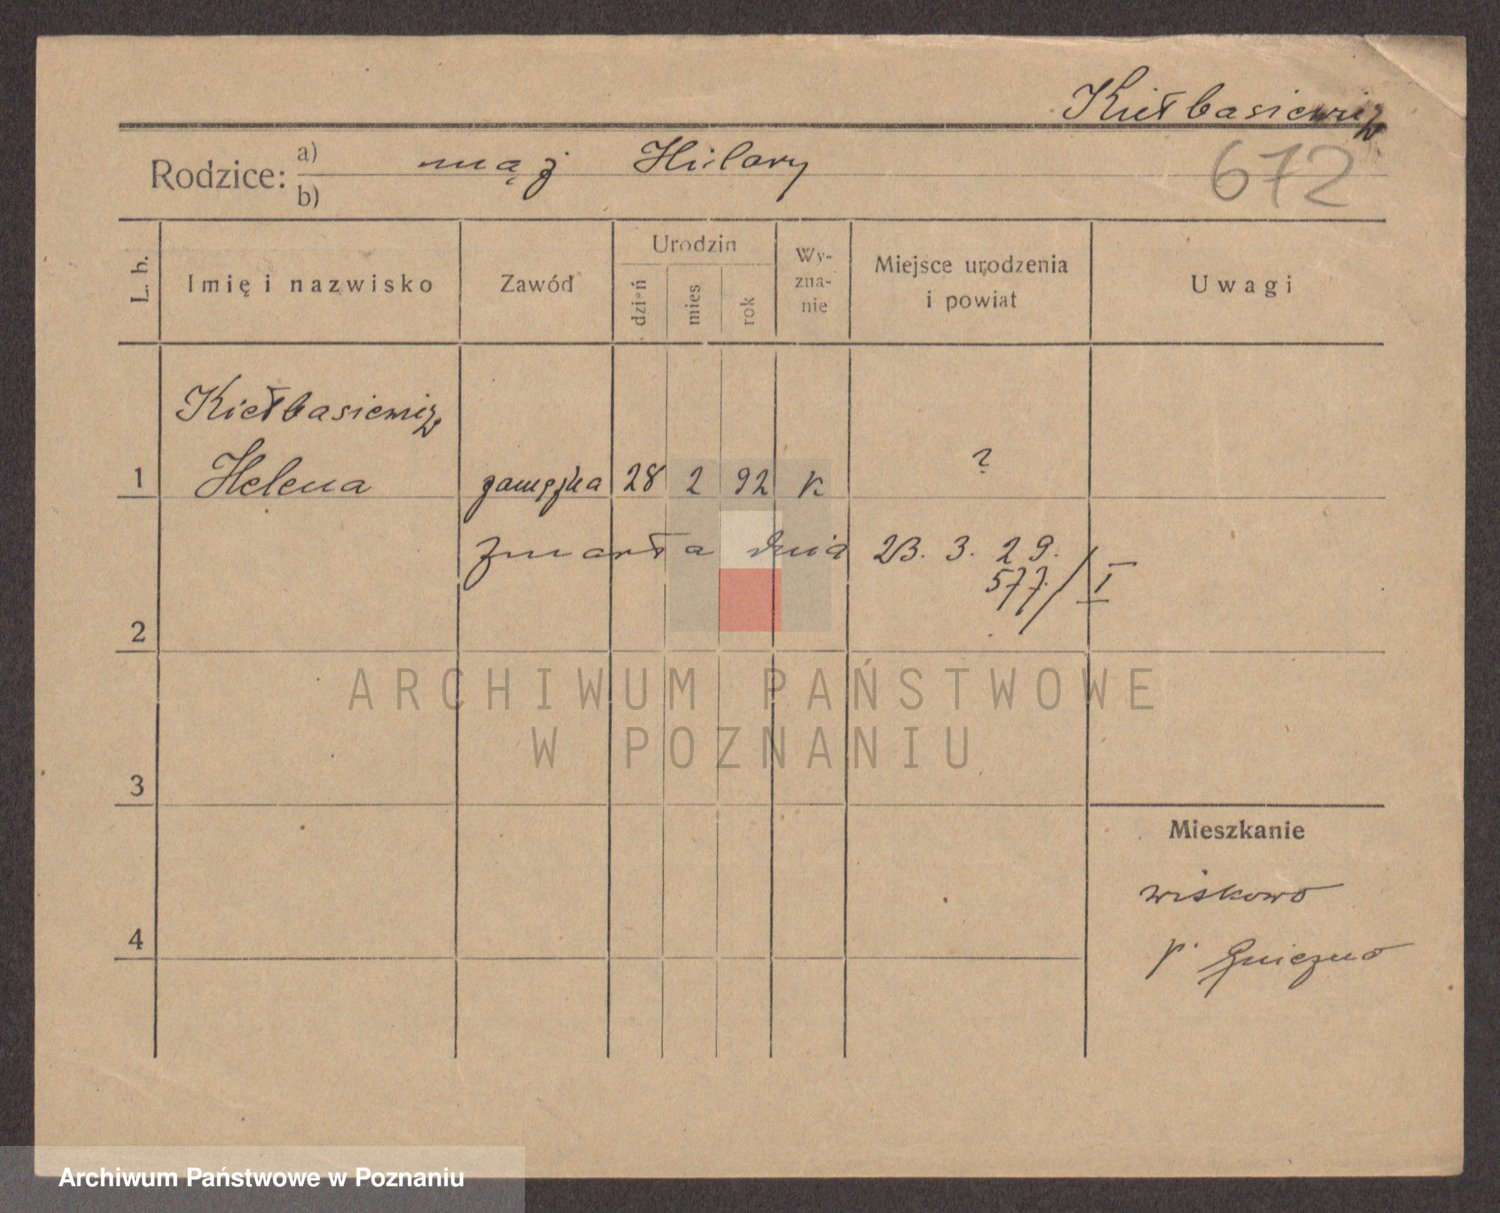 Kiełbasiewicz
672
Rodzice: a) mąż Hilary
b)
L. b.
Imię i nazwisko
Zawód
Urodzin
dzień
mies
rok
Wy-
zna-
nie
Miejsce urodzenia
i powiat
Uwagi
Kiełbasiewicz
1 Helena zamężna 28 2 92 k ?
zmarła dnia 23. 3. 29.
577/I
2
ARCHIWUM PAŃSTWOWE
W POZNANIU
3
Mieszkanie
wiskowo
4
p. Gniezno
Archiwum Państwowe w Poznaniu